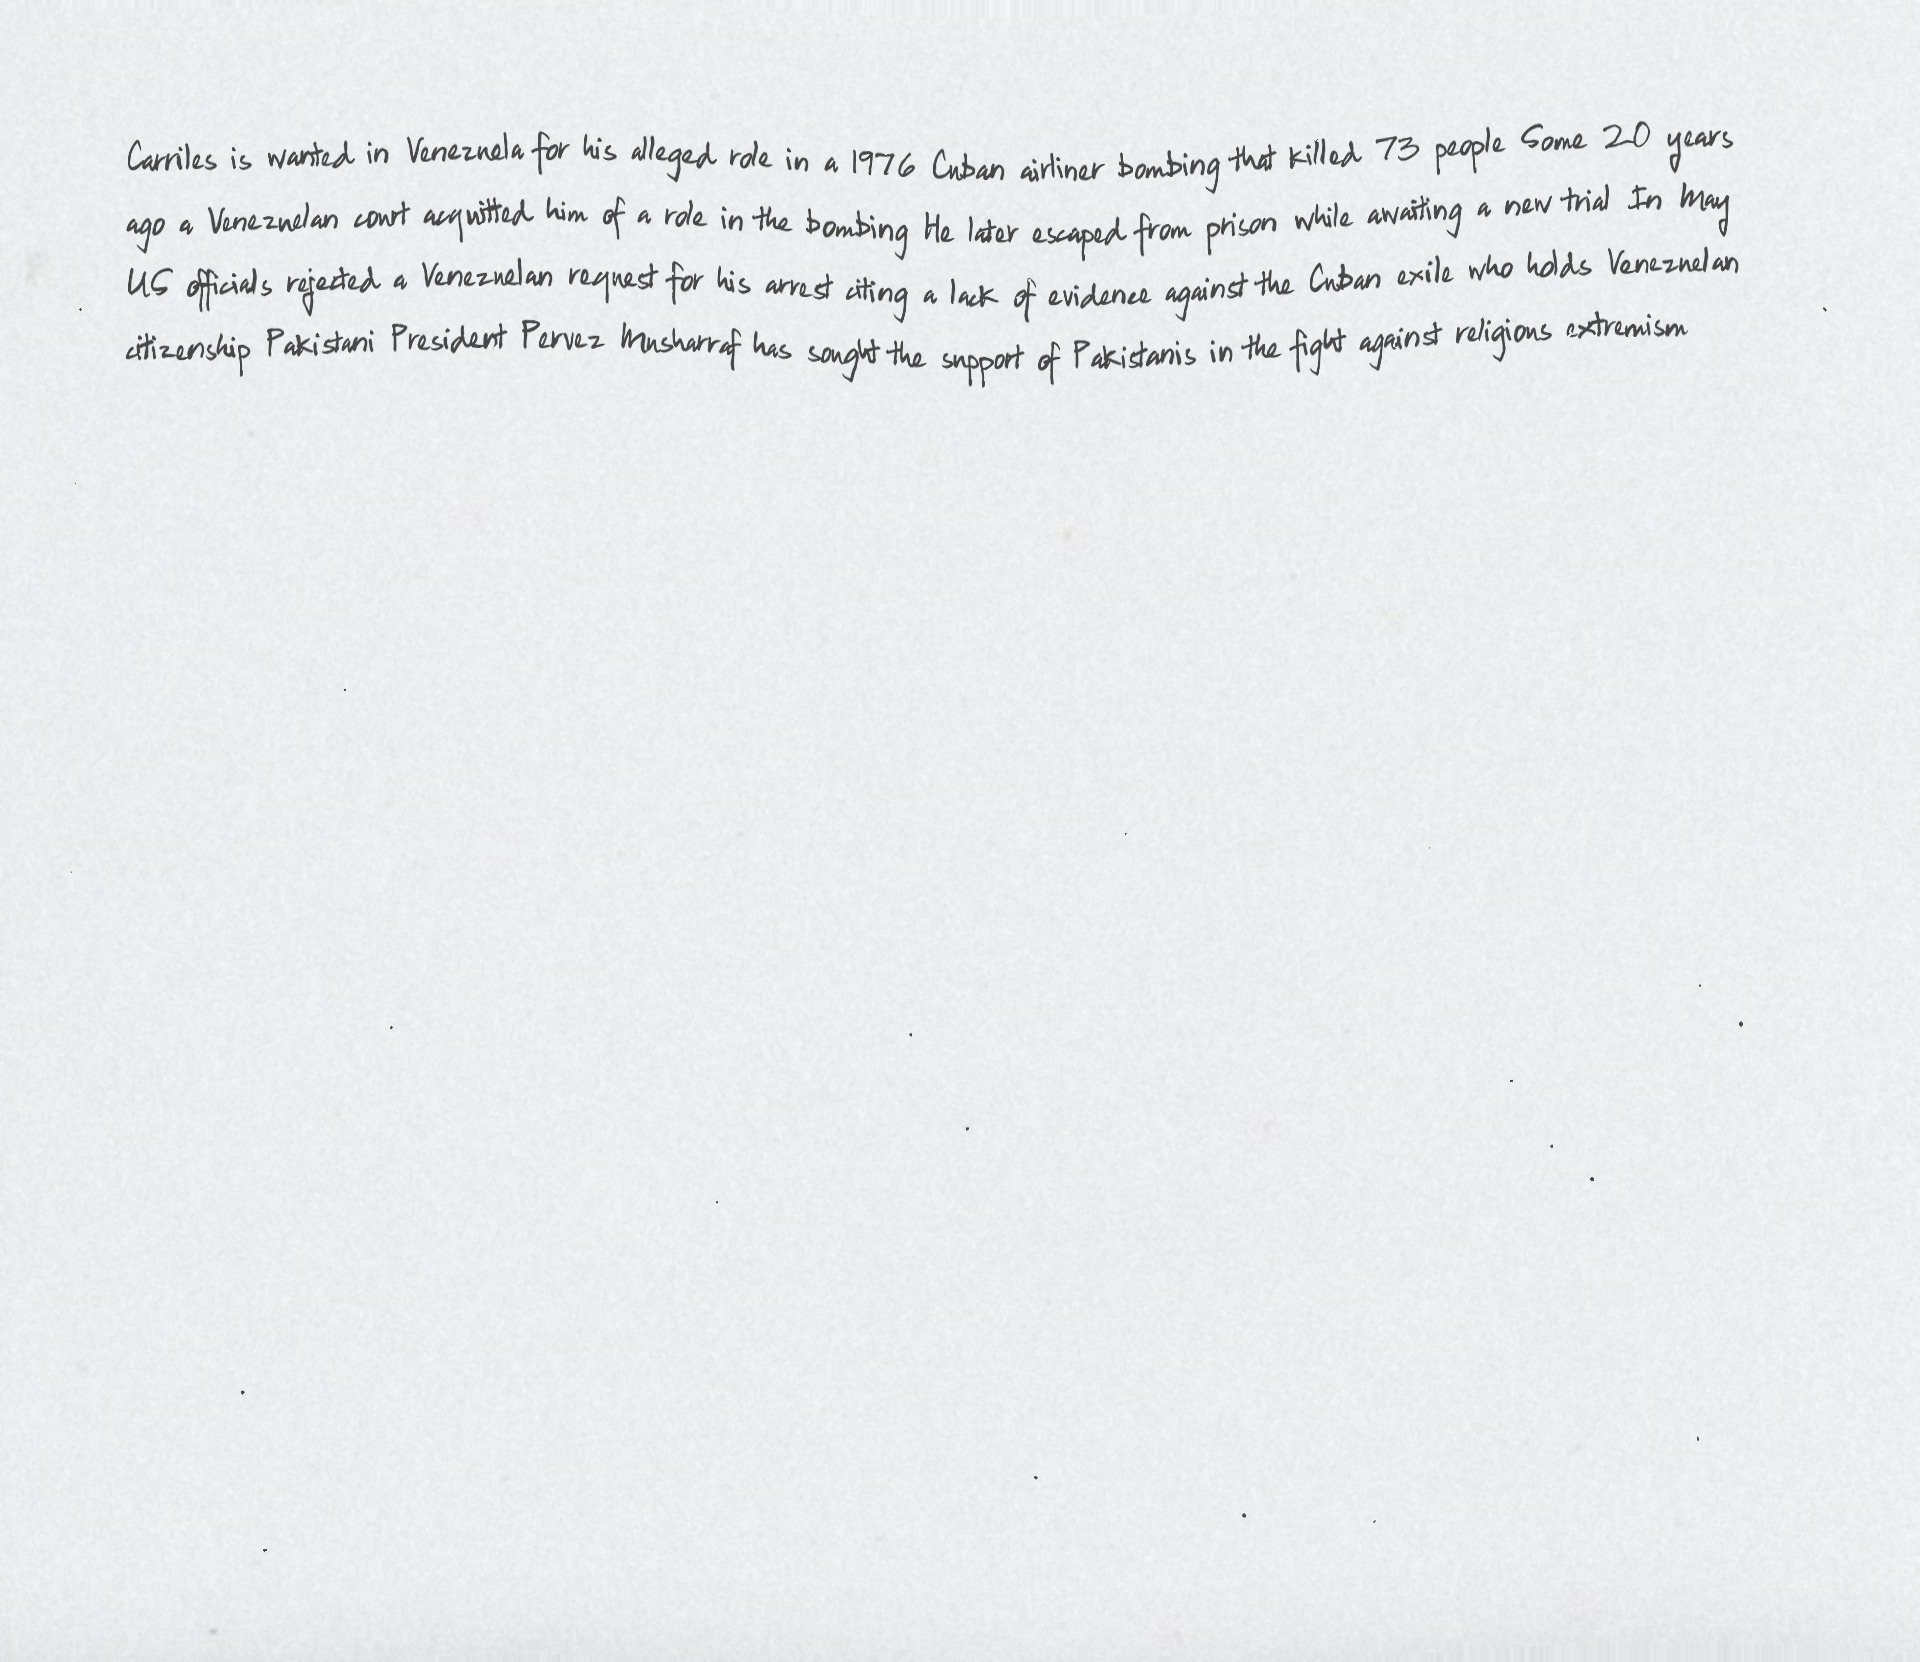 Carriles is wanted in Venezuela for his alleged role in a 1976 Cuban airliner bombing that killed 73 people Some 20 years
ago a Venezuelan court acquitted him of a role in the bombing He later escaped from prison while awaiting a new trial In May
US officials rejected a Venezuelan request for his arrest citing a lack of evidence against the Cuban exile who holds Venezuelan
citizenship Pakistani President Pervez Musharraf has sought the support of Pakistanis in the fight against religious extremism